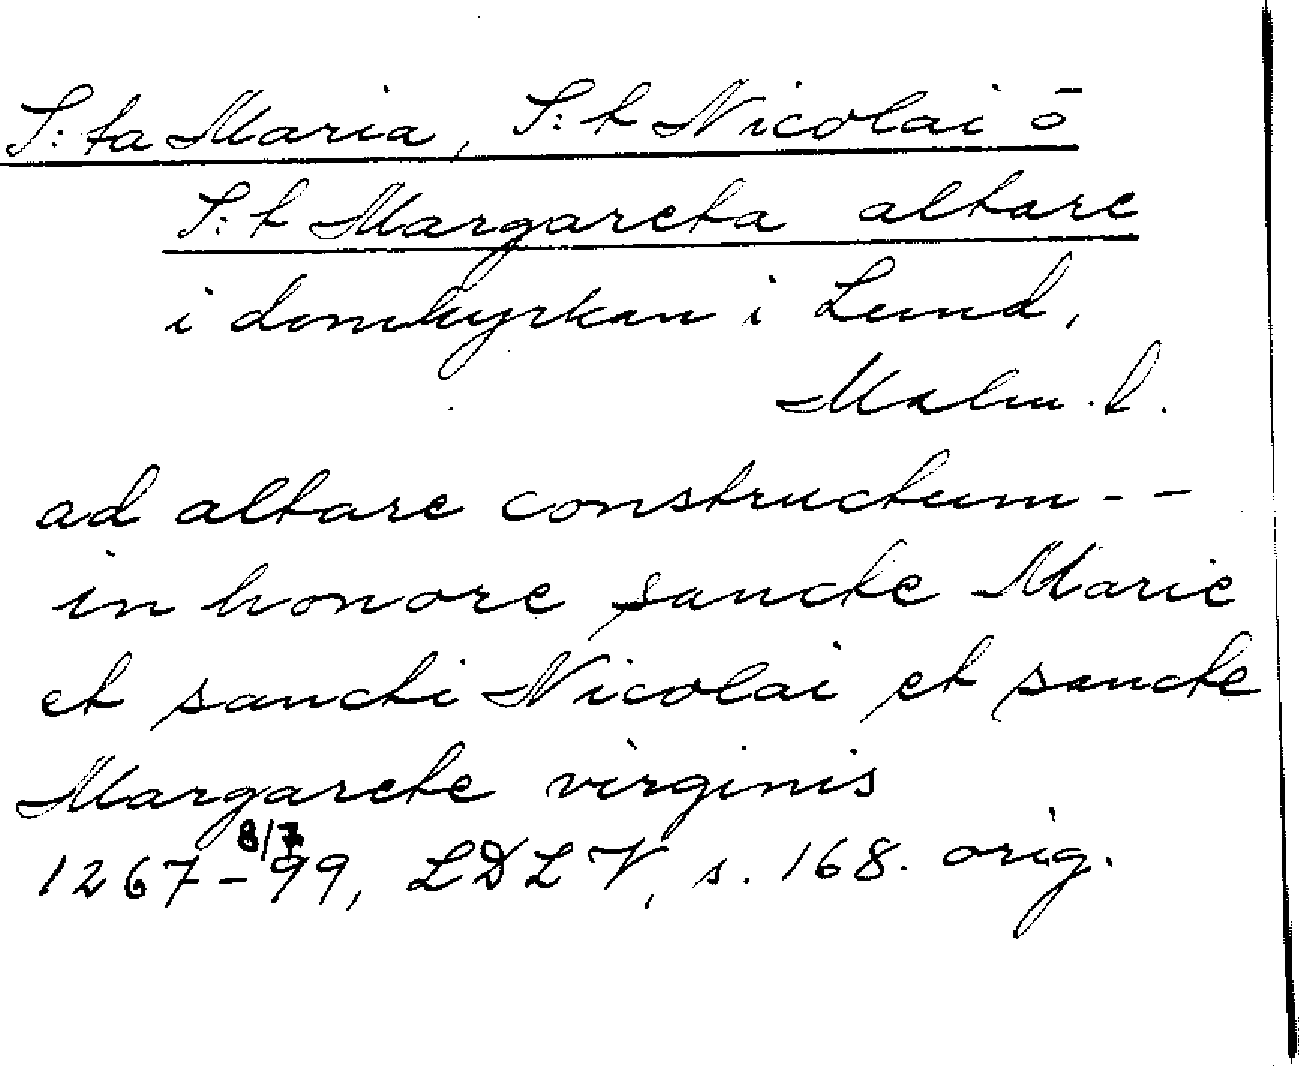 S:ta Maria, S:t Nicolai o
S:t Margareta altare
i domkyrkan i Lund,
Malm. l.
ad altare constructum - -
in honore sancte Marie
et sancti Nicolai et sancte
Margarete virginis
8/7
1267-99, LDL V, s. 168. orig.